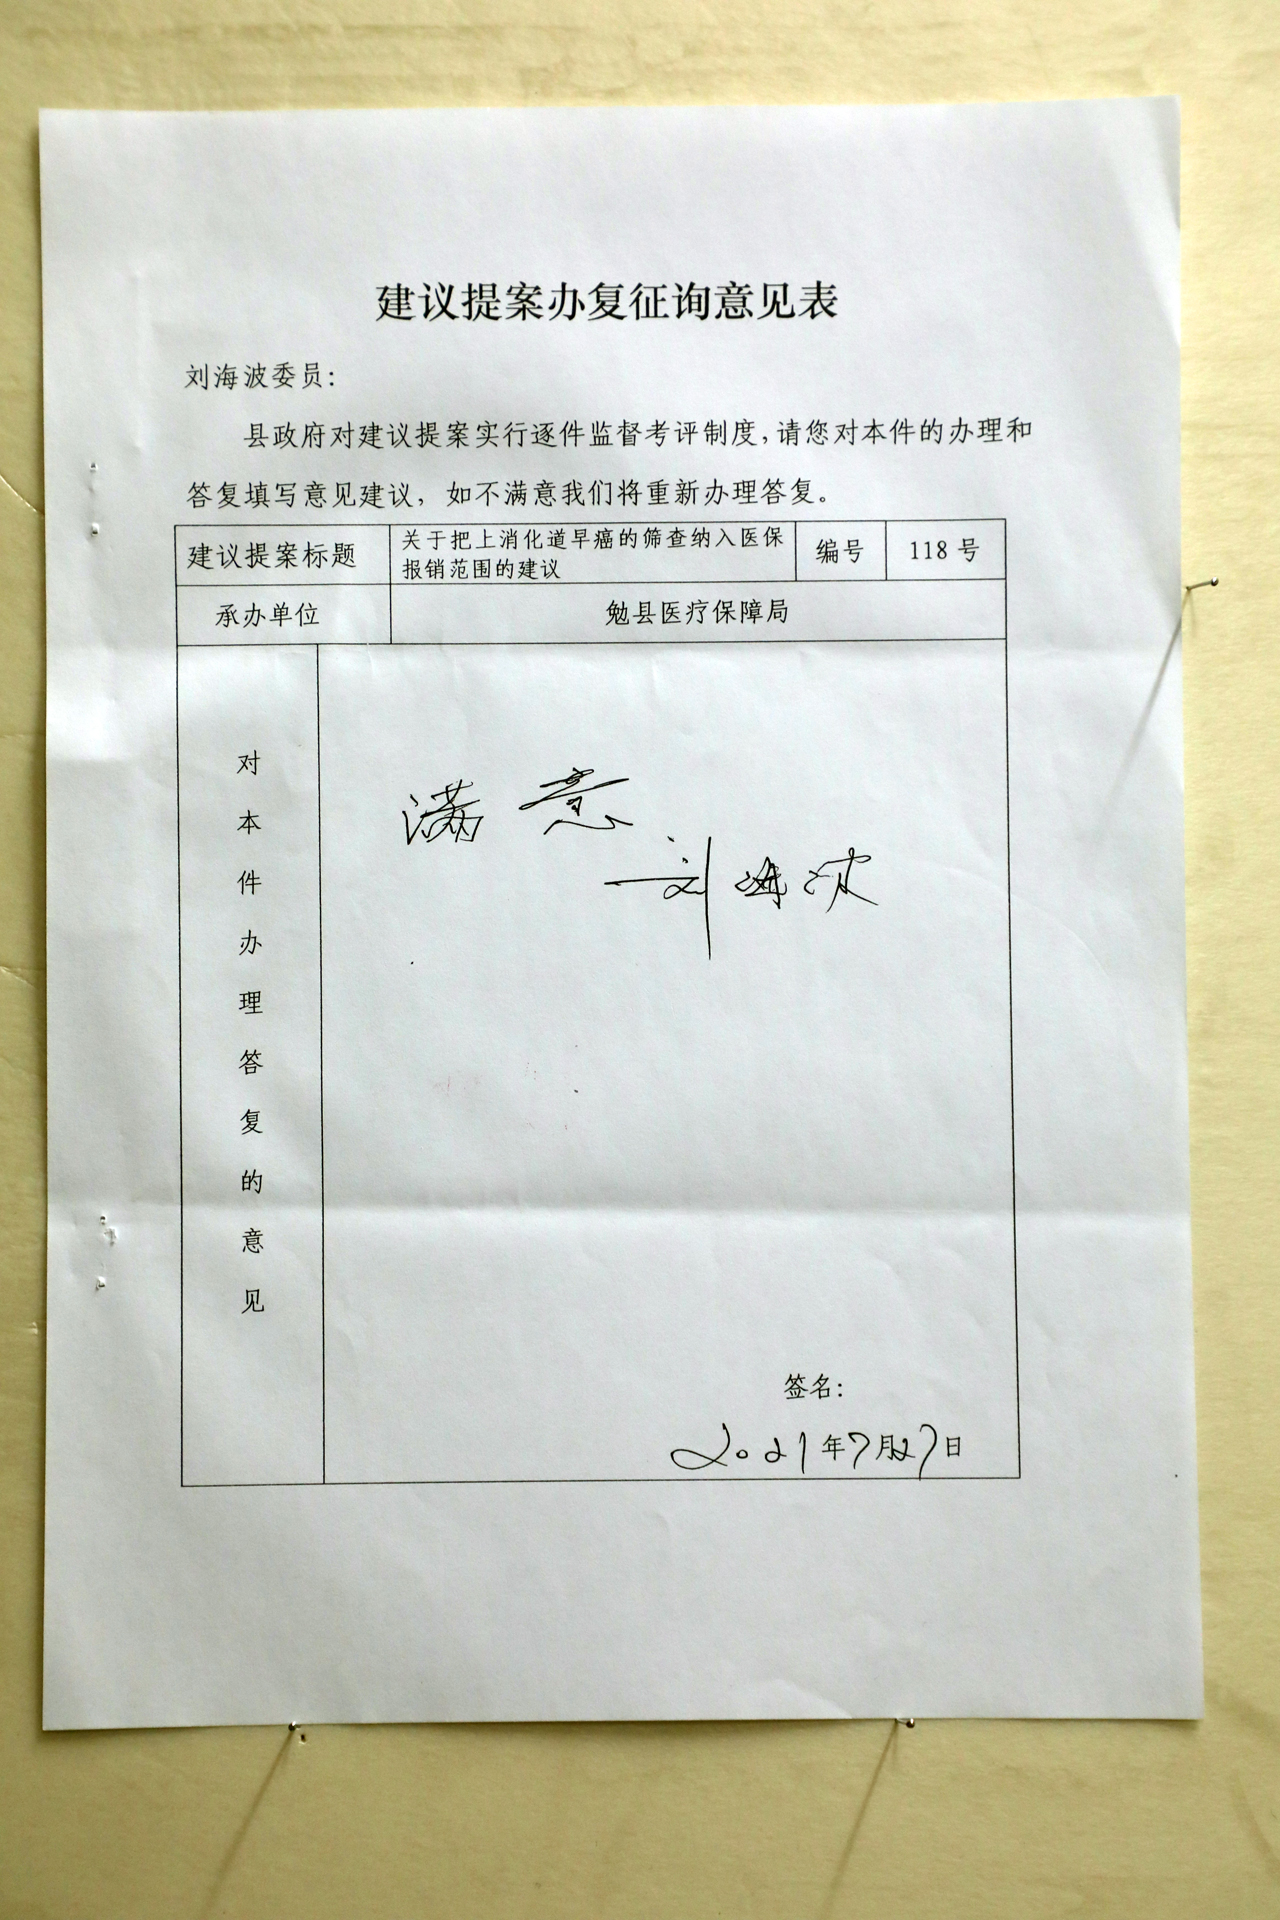 建议提案办复征询意见表
刘海波委员：
县政府对建议提案实行逐件监督考评制度，请您对本件的办理和
答复填写意见建议，如不满意我们将重新办理答复。
建议提案标题
关于把上消化道早癌的筛查纳入医保
报销范围的建议
编号
118 号
承办单位
勉县医疗保障局
对
本
件
办
理
答
复
的
意
见
满意
刘海波
签名：
2021年7月27日